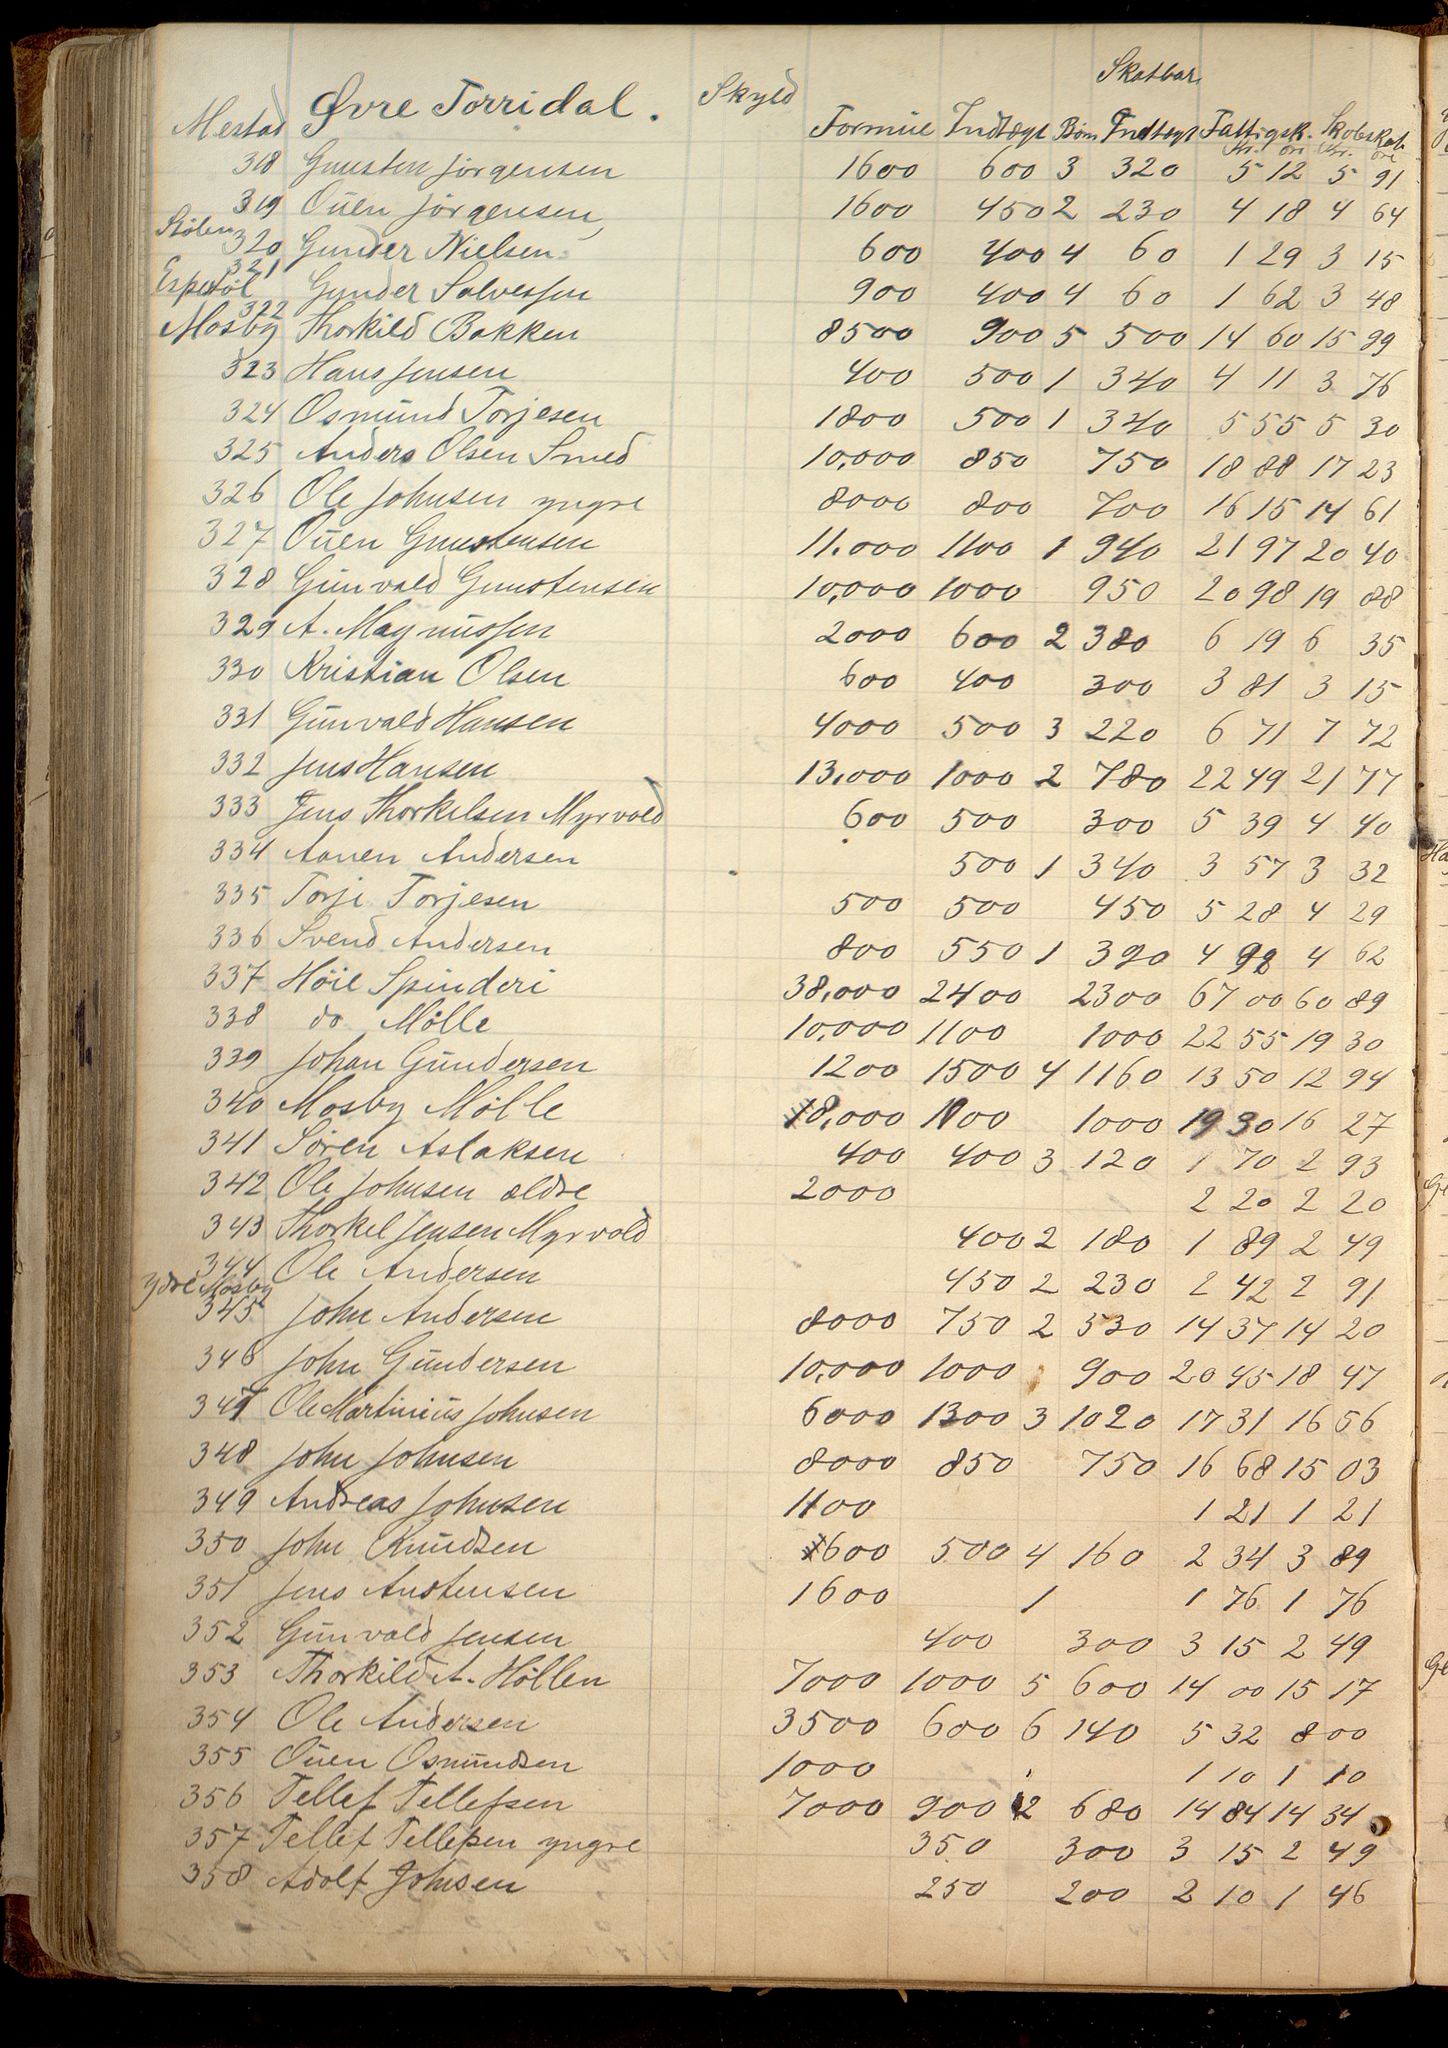 Skatbar
Mestad Øvre Torridal. Skyld Formue Indtægt Børn Indtægt Fattigsk. Skoleskat
Kr. øre Kr. øre
318 Gunsten Jörgensen 1600 600 3 320 5 12 5 91
319 Ouen Jörgensen 1600 450 2 230 4 18 4 64
Stölen
320 Gunder Nielsen 600 400 4 60 1 29 3 15
321
Espestöl Gunder Salvessen 900 400 4 60 1 62 3 48
322
Mosby Thorkild Bakken 8500 900 5 500 14 60 15 99
323 Hans Jensen 400 500 1 340 4 11 3 76
324 Osmund Torjesen 1800 500 1 340 5 55 5 30
325 Anders Olsen Smed 10,000 850 750 18 88 17 23
326 Ole Johnsen yngre 8000 800 700 16 15 14 61
327 Ouen Gunstensen 11.000 1100 1 940 21 97 20 40
328 Gunvald Gunstensen 10,000 1000 950 20 98 19 88
329 A. Magnussen 2000 600 2 380 6 19 6 35
330 Kristian Olsen 600 400 300 3 81 3 15
331 Gunvald Hansen 4000 500 3 220 6 71 7 72
332 Jens Hansen 13,000 1000 2 780 22 49 21 77
333 Jens Thorkelsen Myrvold 600 500 300 5 39 4 40
334 Aanen Andersen 500 1 340 3 57 3 32
335 Torje Torjesen 500 500 450 5 28 4 29
336 Svend Andersen 800 550 1 390 4 92 4 62
337 Höie Spinderi 38,000 2400 2300 67 00 60 89
338 do Mölle 10,000 1100 1000 22 55 19 30
339 Johan Gundersen 1200 1500 4 1160 13 50 12 94
340 Mosby Mölle 8,000 1100 1000 19 30 16 27
341 Sören Aslaksen 400 400 3 120 1 70 2 93
342 Ole Johnsen ældre 2000 2 20 2 20
343 Thorkel Jensen Myrvold 400 2 180 1 89 2 49
344 Ole Andersen 450 2 230 2 42 2 91
Ydre Mosby
345 John Andersen 8000 750 2 530 14 37 14 20
346 John Gundersen 10,000 1000 900 20 45 18 47
347 Ole Martinius Johnsen 6000 1300 3 1020 17 31 16 56
348 John Johnsen 8000 850 750 16 68 15 03
349 Andreas Johnsen 1100 1 21 1 21
350 John Knudsen 600 500 4 160 2 34 3 89
351 Jens Anstensen 1600 1 1 76 1 76
352 Gunvald Jensen 400 300 3 15 2 49
353 Thorkild A. Höllen 7000 1000 5 600 14 00 15 17
354 Ole Andersen 3500 600 6 140 5 32 8 00
355 Ouen Osmundsen 1000 1 10 1 10
356 Tellef Tellefsen 7000 900 2 680 14 84 14 34
357 Tellef Tellefsen yngre 350 300 3 15 2 49
358 Adolf Johnsen 250 200 2 10 1 46